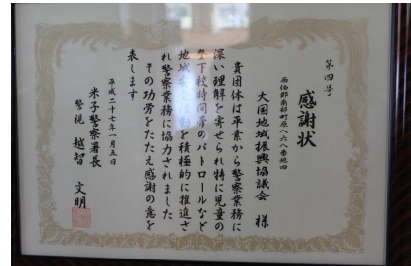 第四号
感謝状
西伯郡南部町原八六八番地四
大国地域振興協議会 様
貴団体は平素から警察業務に
深い理解を寄せられ特に児童の
登下校時間帯のパトロールなど
地域安全活動を積極的に推進さ
れ警察業務に協力されました
その功労をたたえ感謝の意を
表します
平成二十七年一月五日
米子警察署長
警視 越智 文明